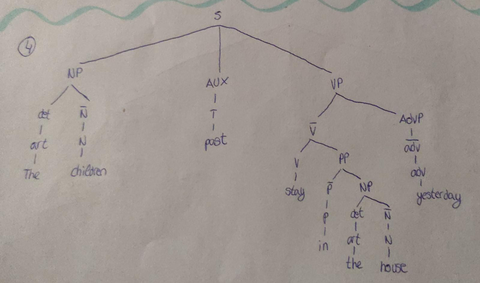 4
S
NP AUX VP
det N̄ T V̄ AdvP
art N past V PP adv̄
The children stay P̄ NP adv
P det N̄ yesterday
in art N
the house